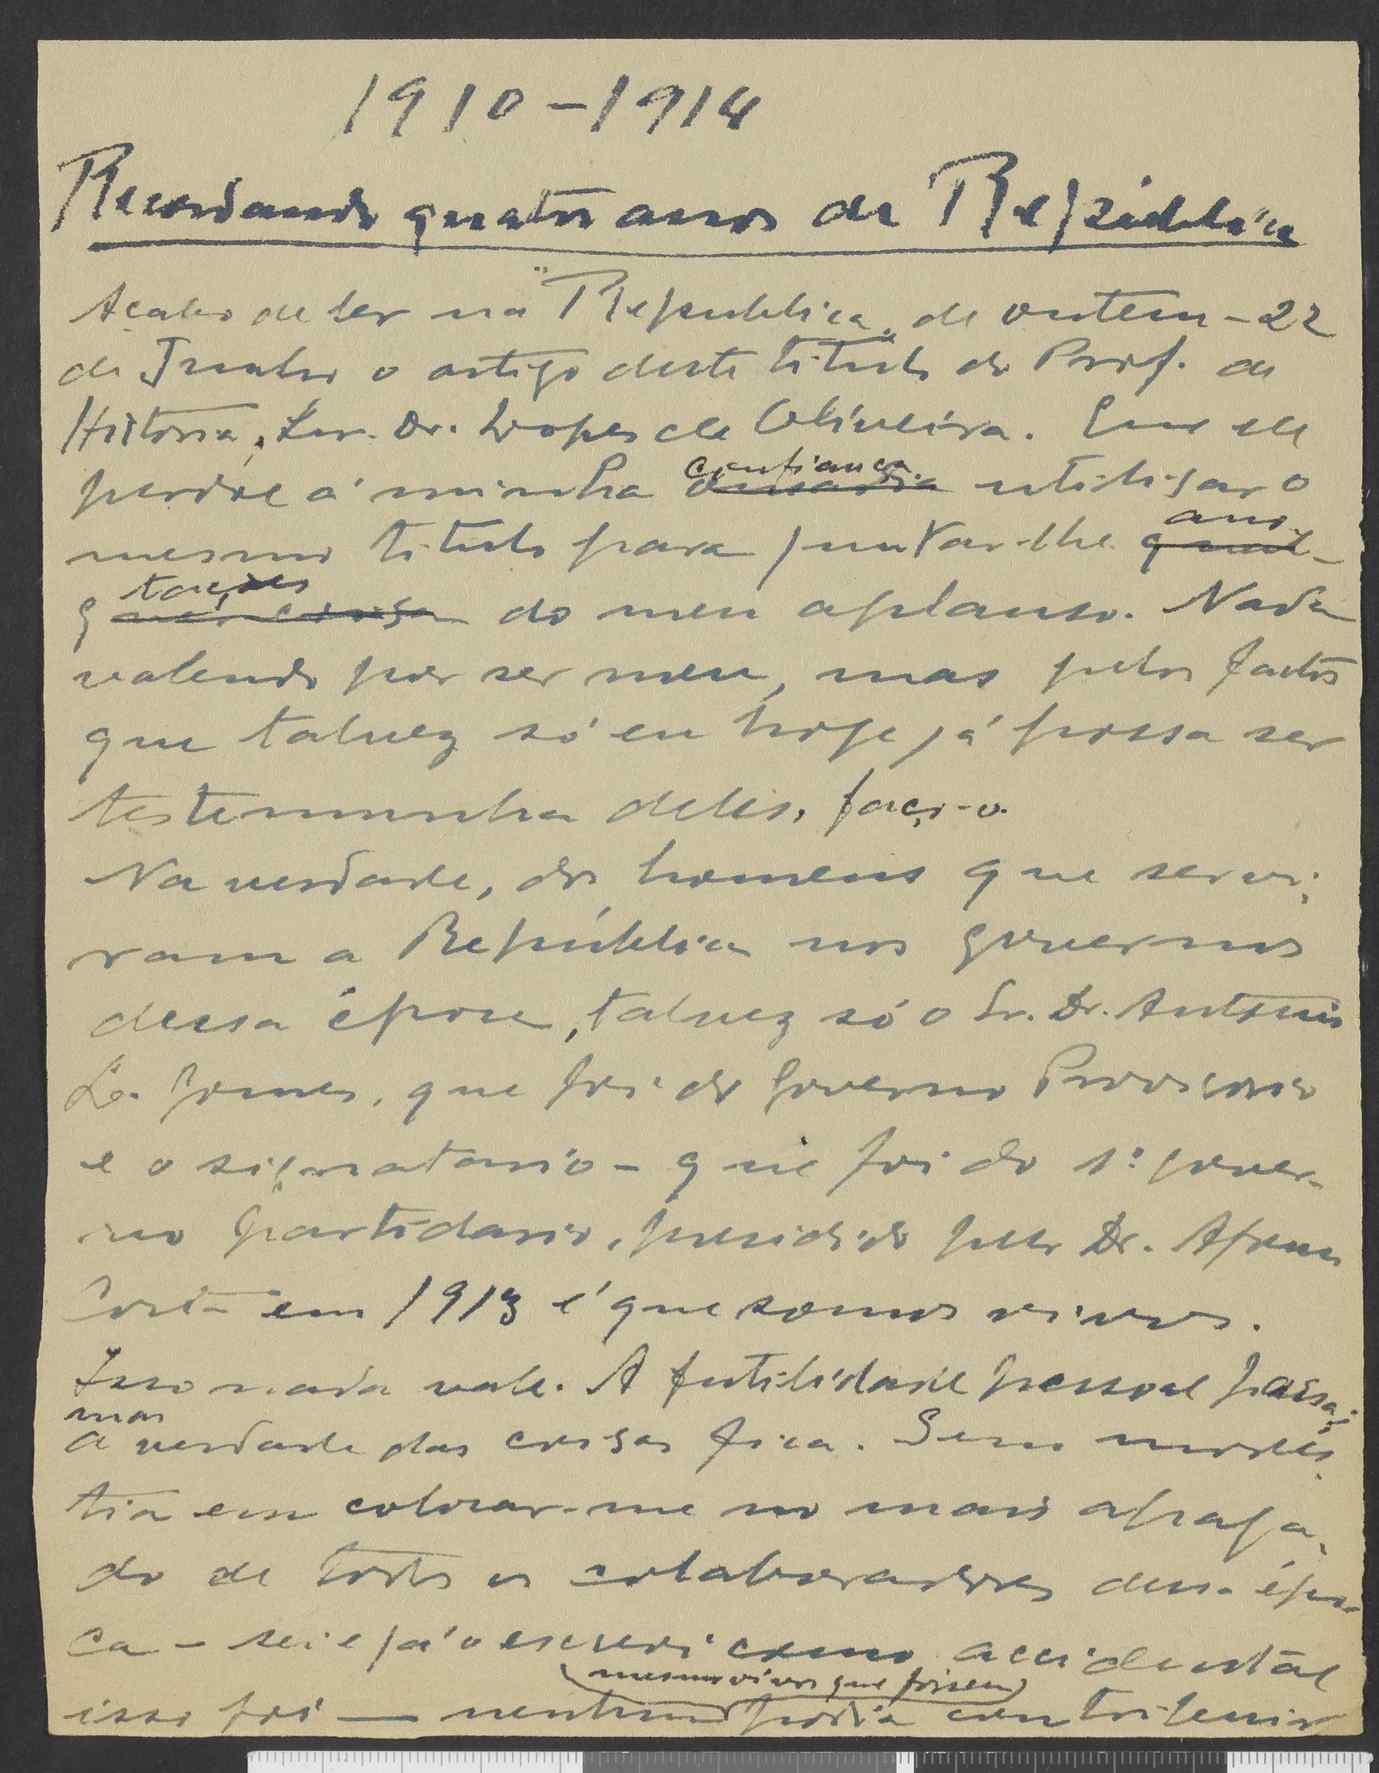 1910-1914
Recordando quatro anos de República
Acabo de ler na "Republica" de ontem - 22
de Junho o artigo deste titulo do Prof. de
Historia, Snr. Dr. Lopes de Oliveira. Que ele
perdoe á minha ousadia confiança utilisar o
mesmo titulo para juntar-lhe qual- ano-
quer coisa tações do meu aplauso. Nada
valendo por ser meu, mas pelos factos
que talvez só eu hoje já possa ser
testemunha deles, faço-o.
Na verdade, dos homens que servi-
ram a República nos governos
dessa época, talvez só o Sr. Dr. Antonio
Lz. Gomes, que foi do Governo Provisorio
e o signatario - que foi do 1º gover-
no partidario, presidido pelo Dr. Afonso
Costa em 1913 é que somos vivos.
Isso nada vale. A futilidade pessoal passa;
mas
a verdade das coisas fica. Sem modés-
tia em colocar-me no mais apaga-
do de todos os colaboradores dessa épo-
ca - sei e já o escrevi como accidental
isso foi — nenhum (mesmo vivos que fossem) podia contribuir